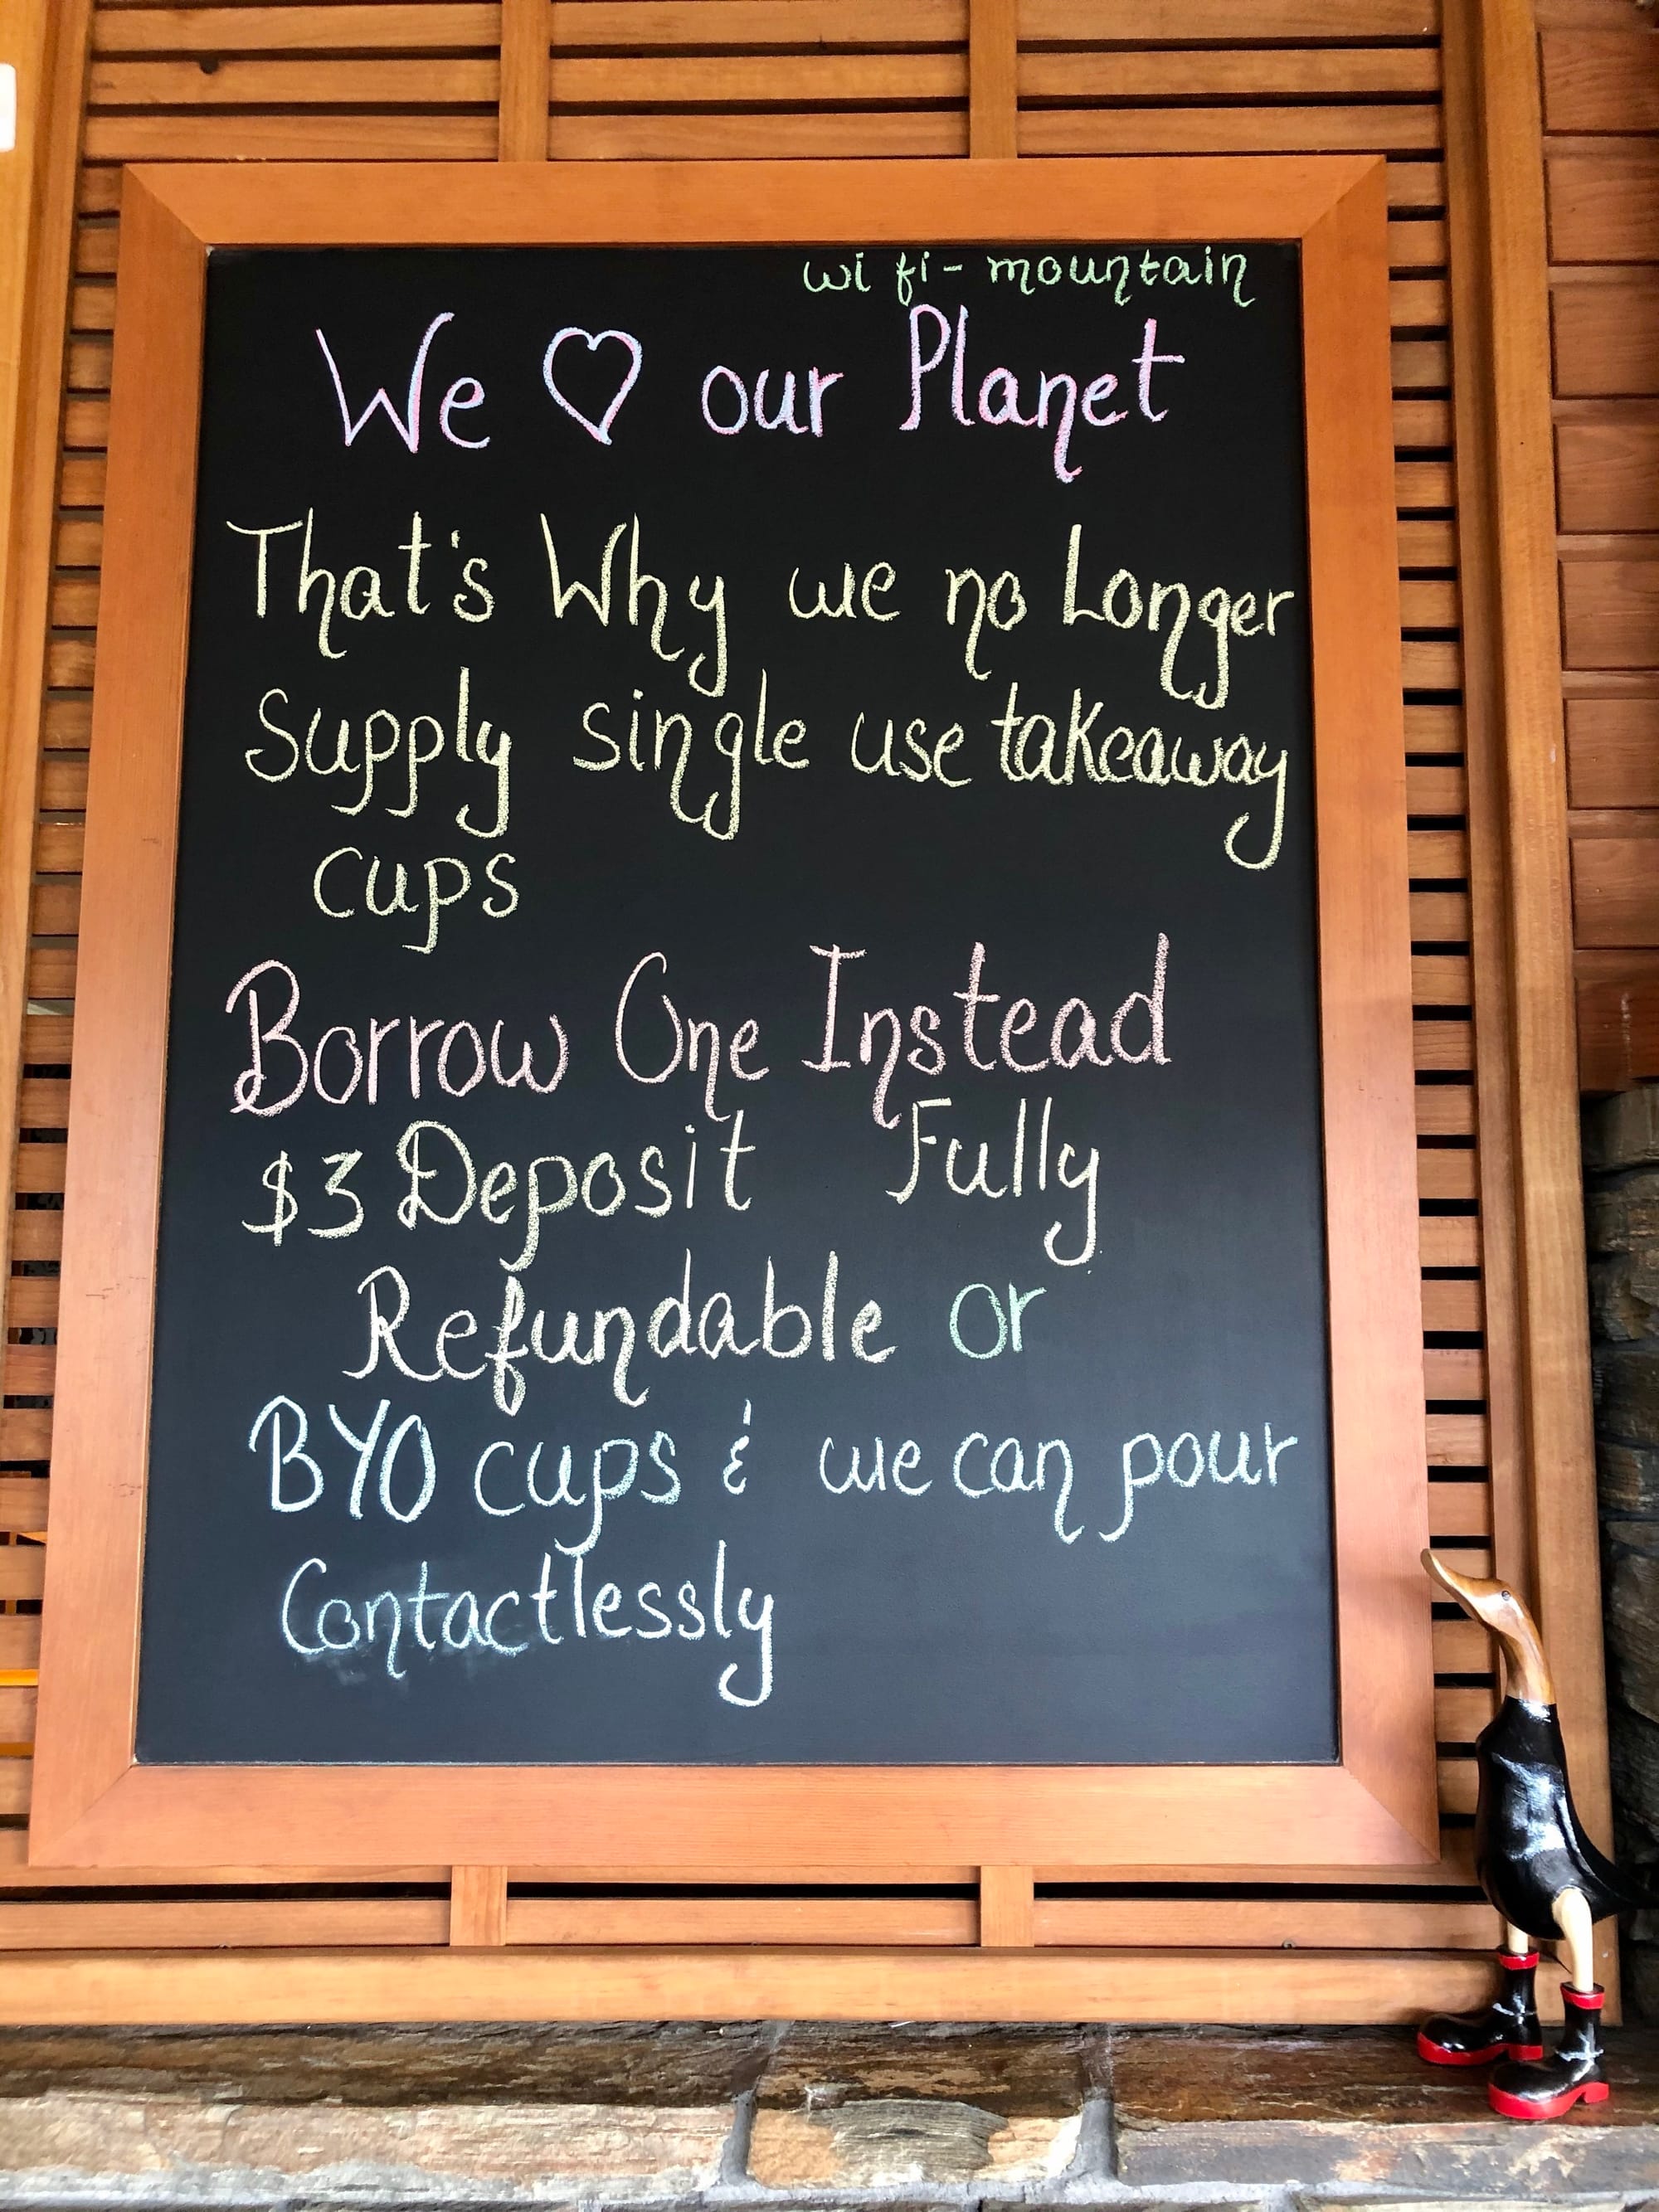 wi fi - mountain
We ♡ our Planet
That's Why we no Longer
Supply single use takeaway
cups
Borrow One Instead
$3 Deposit Fully
Refundable or
BYO cups & we can pour
Contactlessly